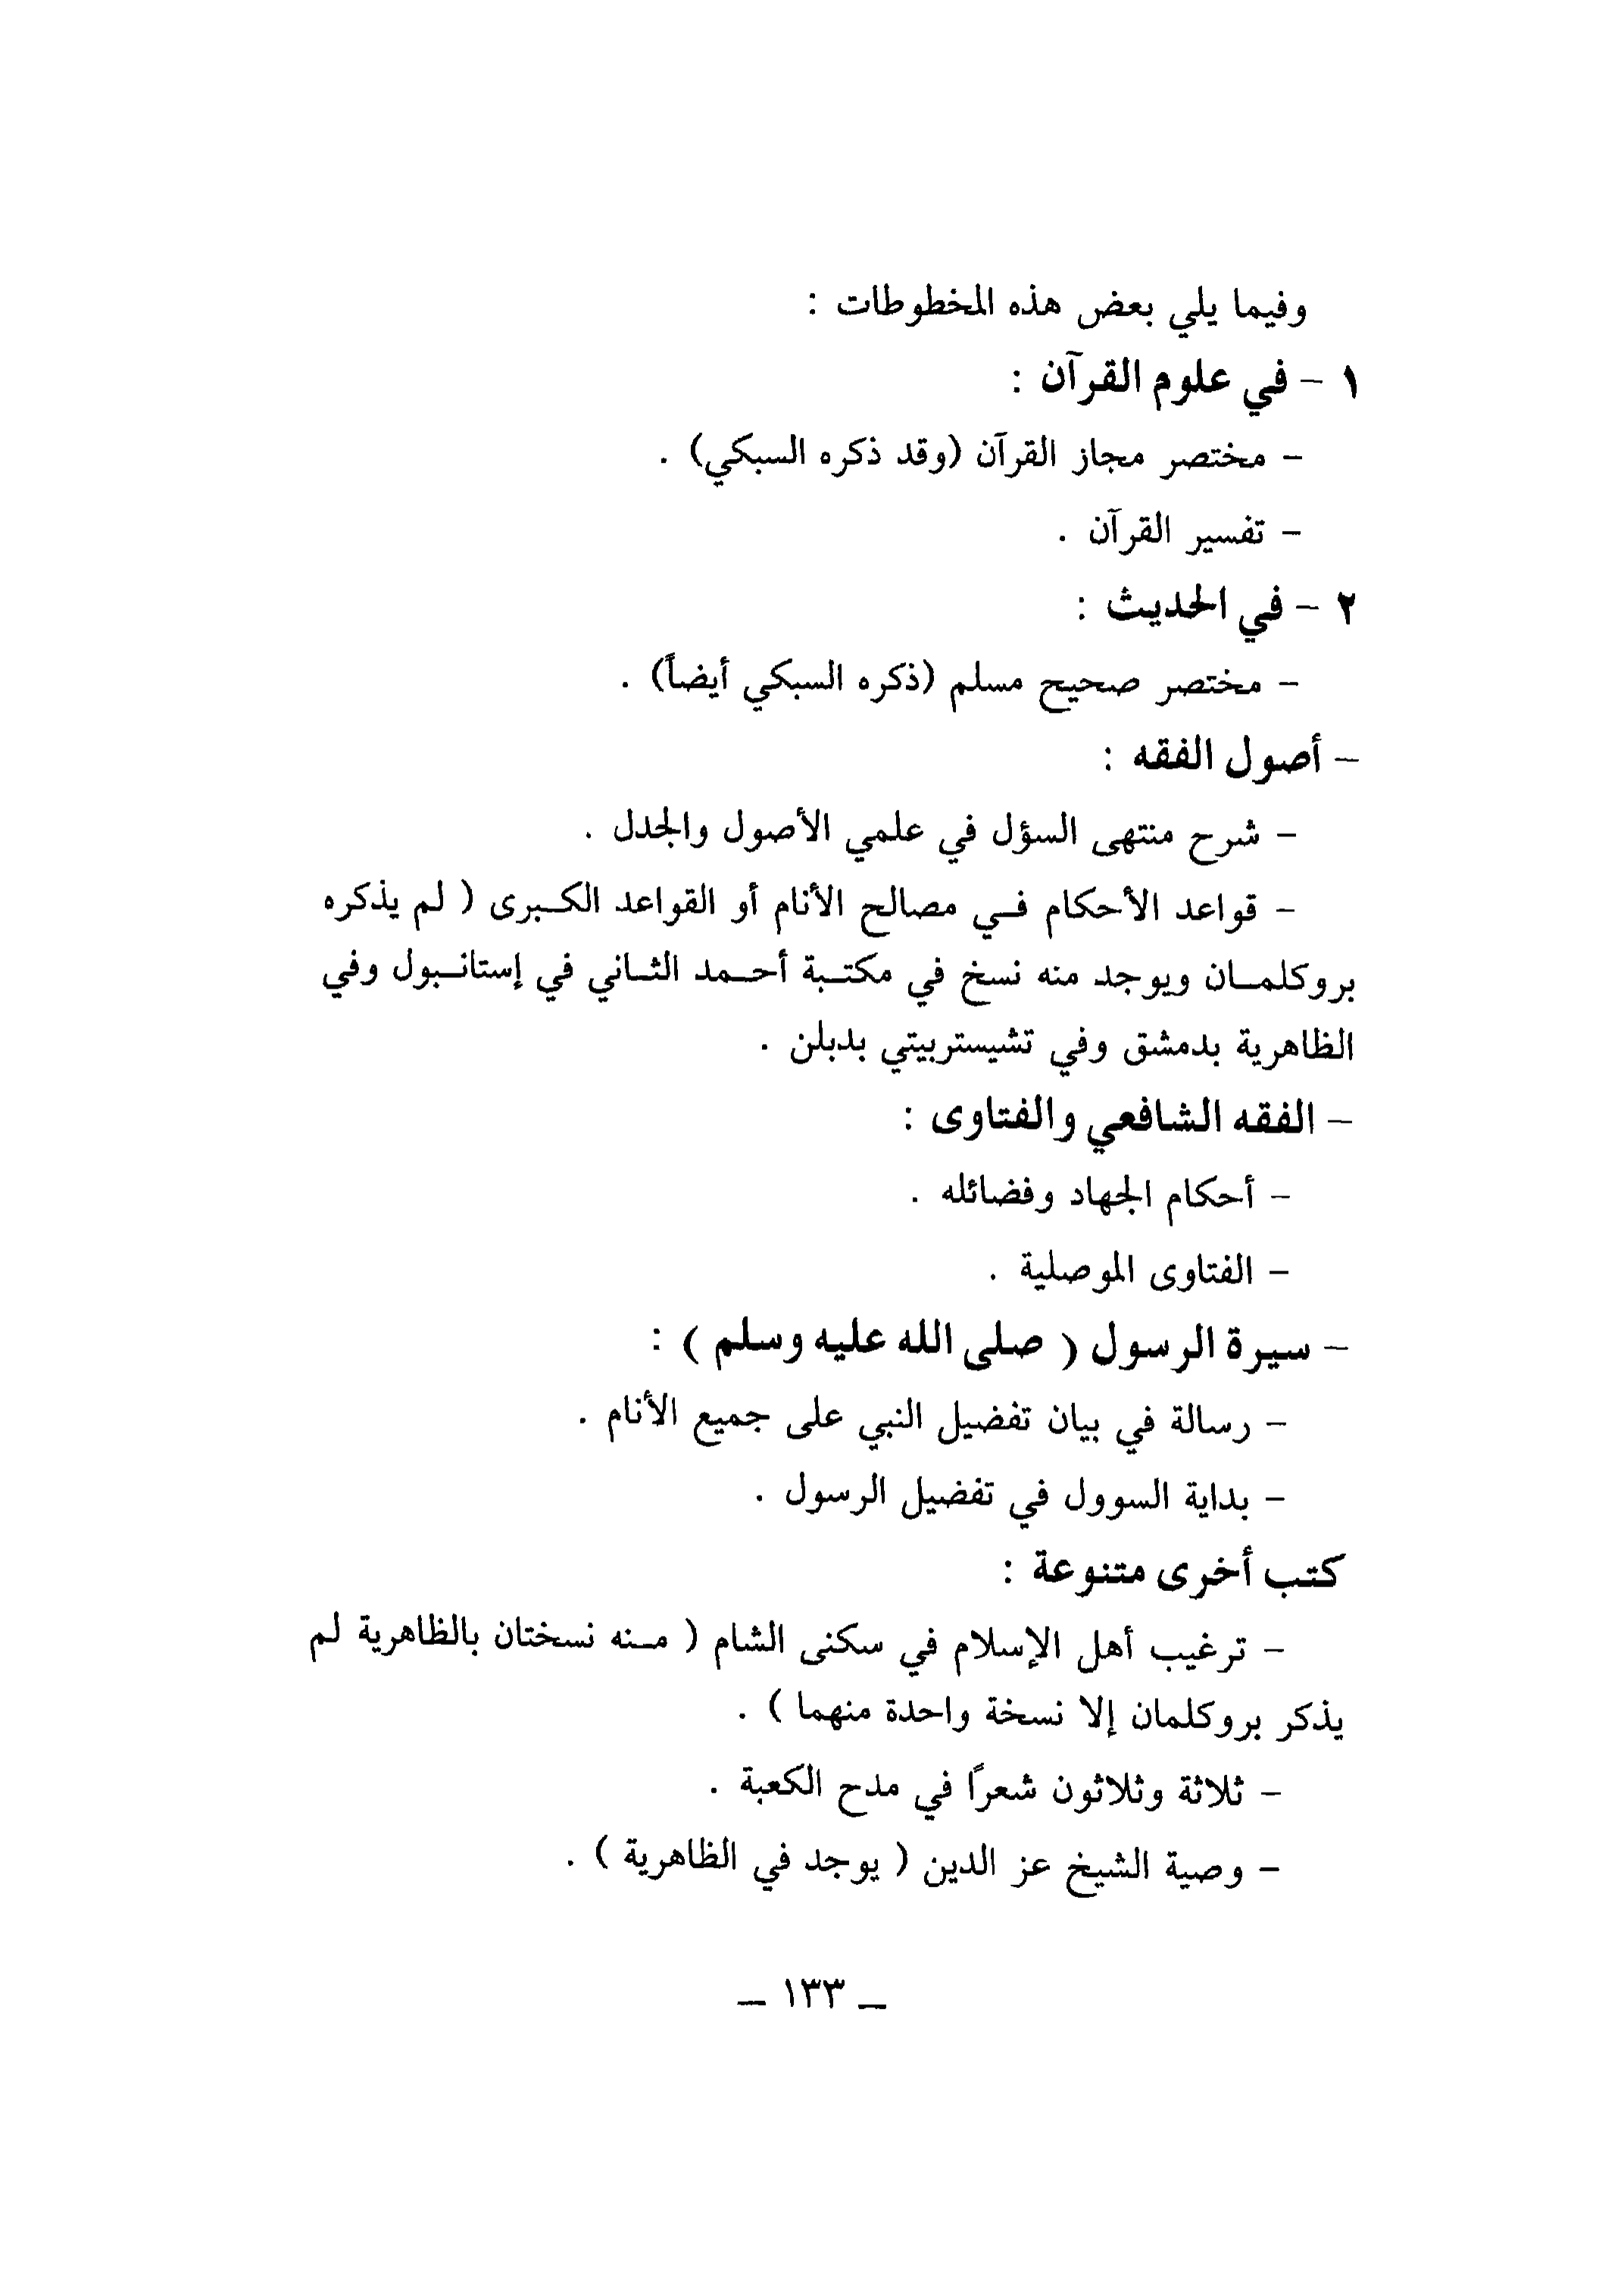 وفيما يلي بعض هذه المخطوطات :
١ - في علوم القرآن :
- مختصر مجاز القرآن (وقد ذكره السبكي) .
- تفسير القرآن .
٢ - في الحديث :
- مختصر صحيح مسلم (ذكره السبكي أيضاً) .
- أصول الفقه :
- شرح منتهى السؤل في علمي الأصول والجدل .
- قواعد الأحكام فـي مصالح الأنام أو القواعد الكـبرى ( لم يذكره
بروكلمـان ويوجد منه نسخ في مكتـبة أحـمد الثـاني في إستانـبول وفي
الظاهرية بدمشق وفي تشيستربيتي بدبلن .
- الفقه الشافعي والفتاوى :
- أحكام الجهاد وفضائله .
- الفتاوى الموصلية .
- سيرة الرسول ( صلى الله عليه وسلم ) :
- رسالة في بيان تفضيل النبي على جميع الأنام .
- بداية السوول في تفضيل الرسول .
كتب أخرى متنوعة :
- ترغيب أهل الإسلام في سكنى الشام ( مـنه نسختان بالظاهرية لم
يذكر بروكلمان إلا نسخة واحدة منهما ) .
- ثلاثة وثلاثون شعرًا في مدح الكعبة .
- وصية الشيخ عز الدين ( يوجد في الظاهرية ) .
ــ ١٣٣ ــ